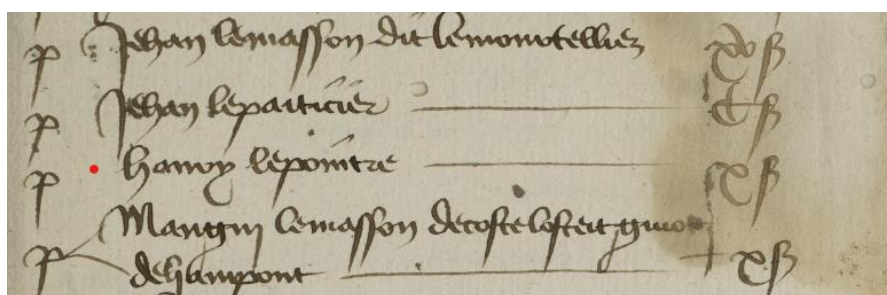 p Jehan lemasson dit lemonotellier xv s
p Jehan lepaiticier c s
p hanry lepointre x s
p Mangin lemasson decoste losteit
dehampont x s